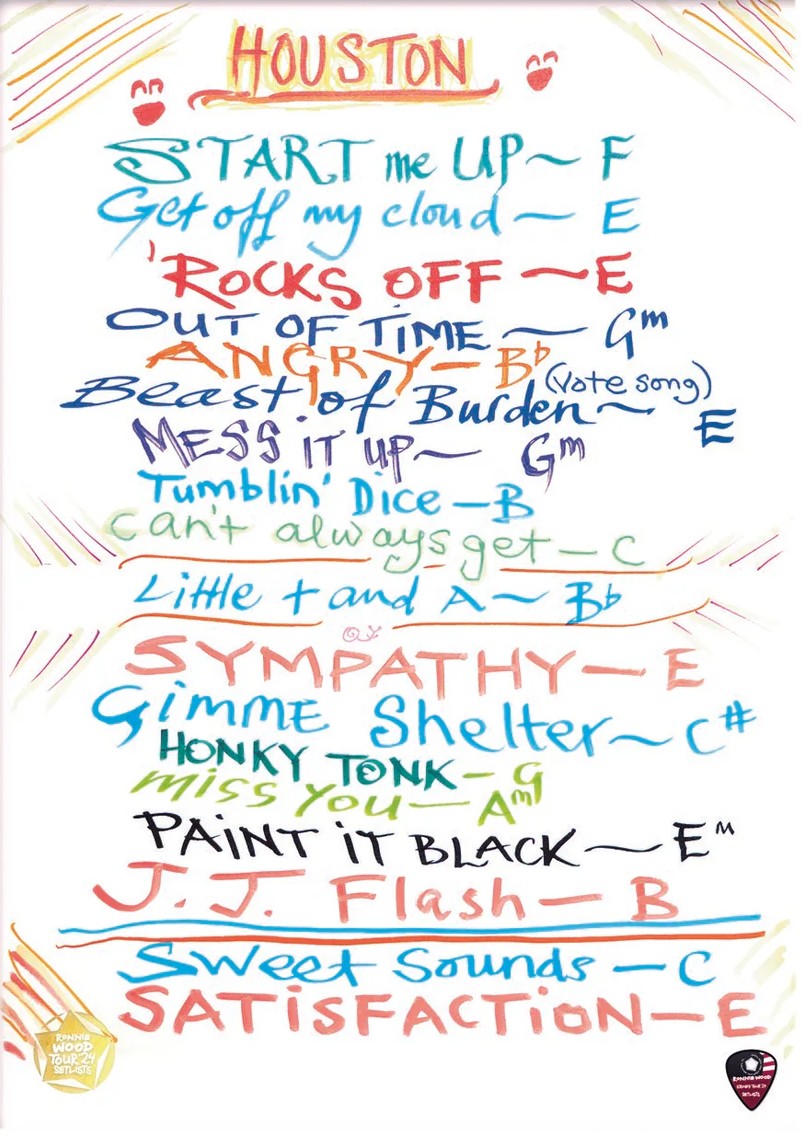 HOUSTON
START me UP ~ F
Get off my cloud ~ E
'ROCKS OFF ~ E
OUT OF TIME ~ Gm
ANGRY — B♭
(vote song)
Beast of Burden ~ E
MESS iT UP ~ Gm
Tumblin' Dice — B
can't always get — C
Little t and A ~ B♭
SYMPATHY — E
GiMME Shelter ~ C#
HONKY TONK — G
miss You — Am
PAiNT iT BLACK ~ Em
J.J. Flash — B
Sweet Sounds — C
SATiSFACTiON — E
RONNIE
WOOD
TOUR '24
SETLISTS
RONNIE WOOD
SETLISTS